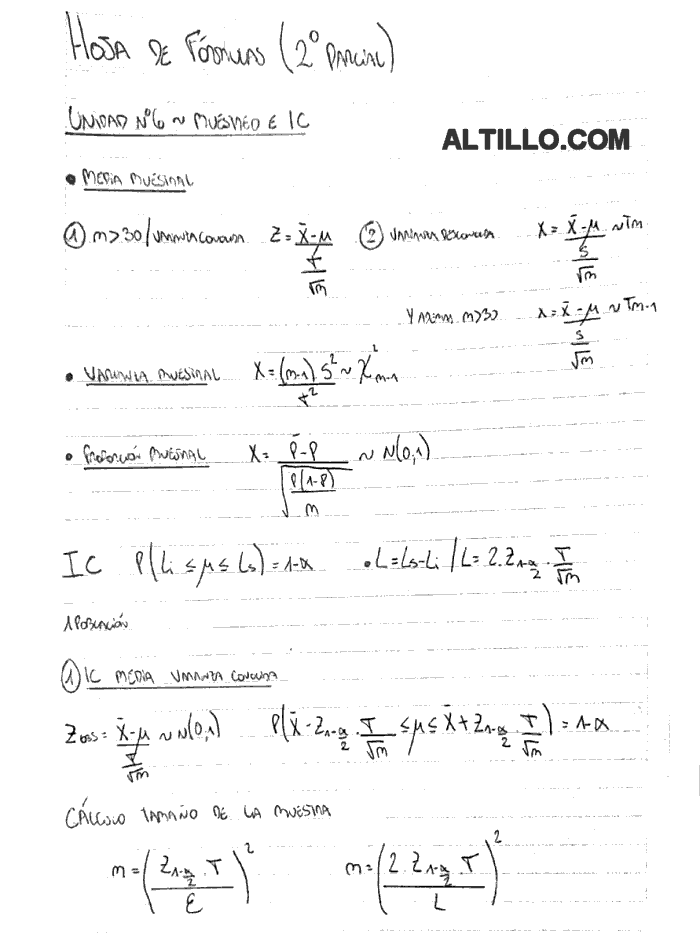 HOJA DE FÓRMULAS (2º PARCIAL)
UNIDAD Nº6 ~ MUESTREO E IC
ALTILLO.COM
• MEDIA MUESTRAL
① n>30/VARIANZA CONOCIDA Z = (X̄-μ)/(σ/√n) ② VARIANZA DESCONOCIDA X = (X̄-μ)/(S/√n) ~ Tn
Y ADEMÁS n>30 X = (X̄-μ)/(S/√n) ~ Tn-1
• VARIANZA MUESTRAL X = (n-1) S²/σ² ~ χ²n-1
• PROPORCIÓN MUESTRAL X = (P̄-P)/√(P(1-P)/n) ~ N(0,1)
IC P(Li ≤ μ ≤ Ls) = 1-α • L = Ls-Li / L = 2.Z1-α/2 . σ/√n
1 POBLACIÓN
① IC MEDIA VARIANZA CONOCIDA
Z OBS = (X̄-μ)/(σ/√n) ~ N(0,1) P(X̄ - Z1-α/2 . σ/√n ≤ μ ≤ X̄ + Z1-α/2 . σ/√n) = 1-α
CÁLCULO TAMAÑO DE LA MUESTRA
n = (Z1-α/2 . σ / E)² n = (2 . Z1-α/2 . σ / L)²